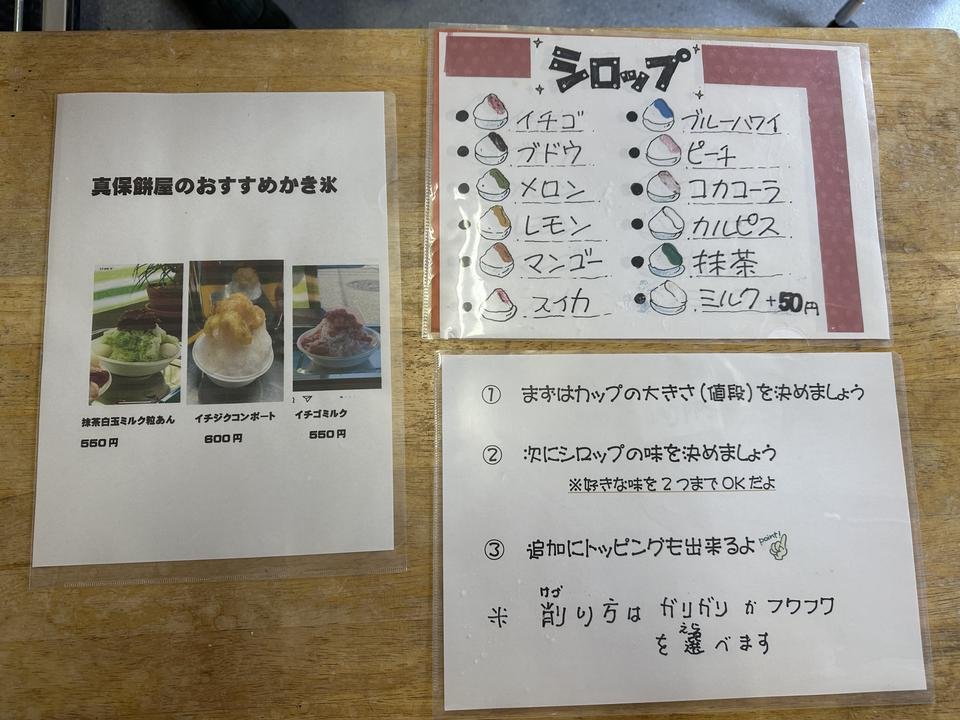 真保餅屋のおすすめかき氷
抹茶白玉ミルク粒あん
550円
イチジクコンポート
600円
イチゴミルク
550円
シロップ
イチゴ
ブドウ
メロン
レモン
マンゴー
スイカ
ブルーハワイ
ピーチ
コカコーラ
カルピス
抹茶
ミルク+50円
① まずはカップの大きさ(値段)を決めましょう
② 次にシロップの味を決めましょう
※好きな味を2つまでOKだよ
③ 追加にトッピングも出来るよ point!
けず
※ 削り方は ガリガリ か フワフワ
えら
を 選べます